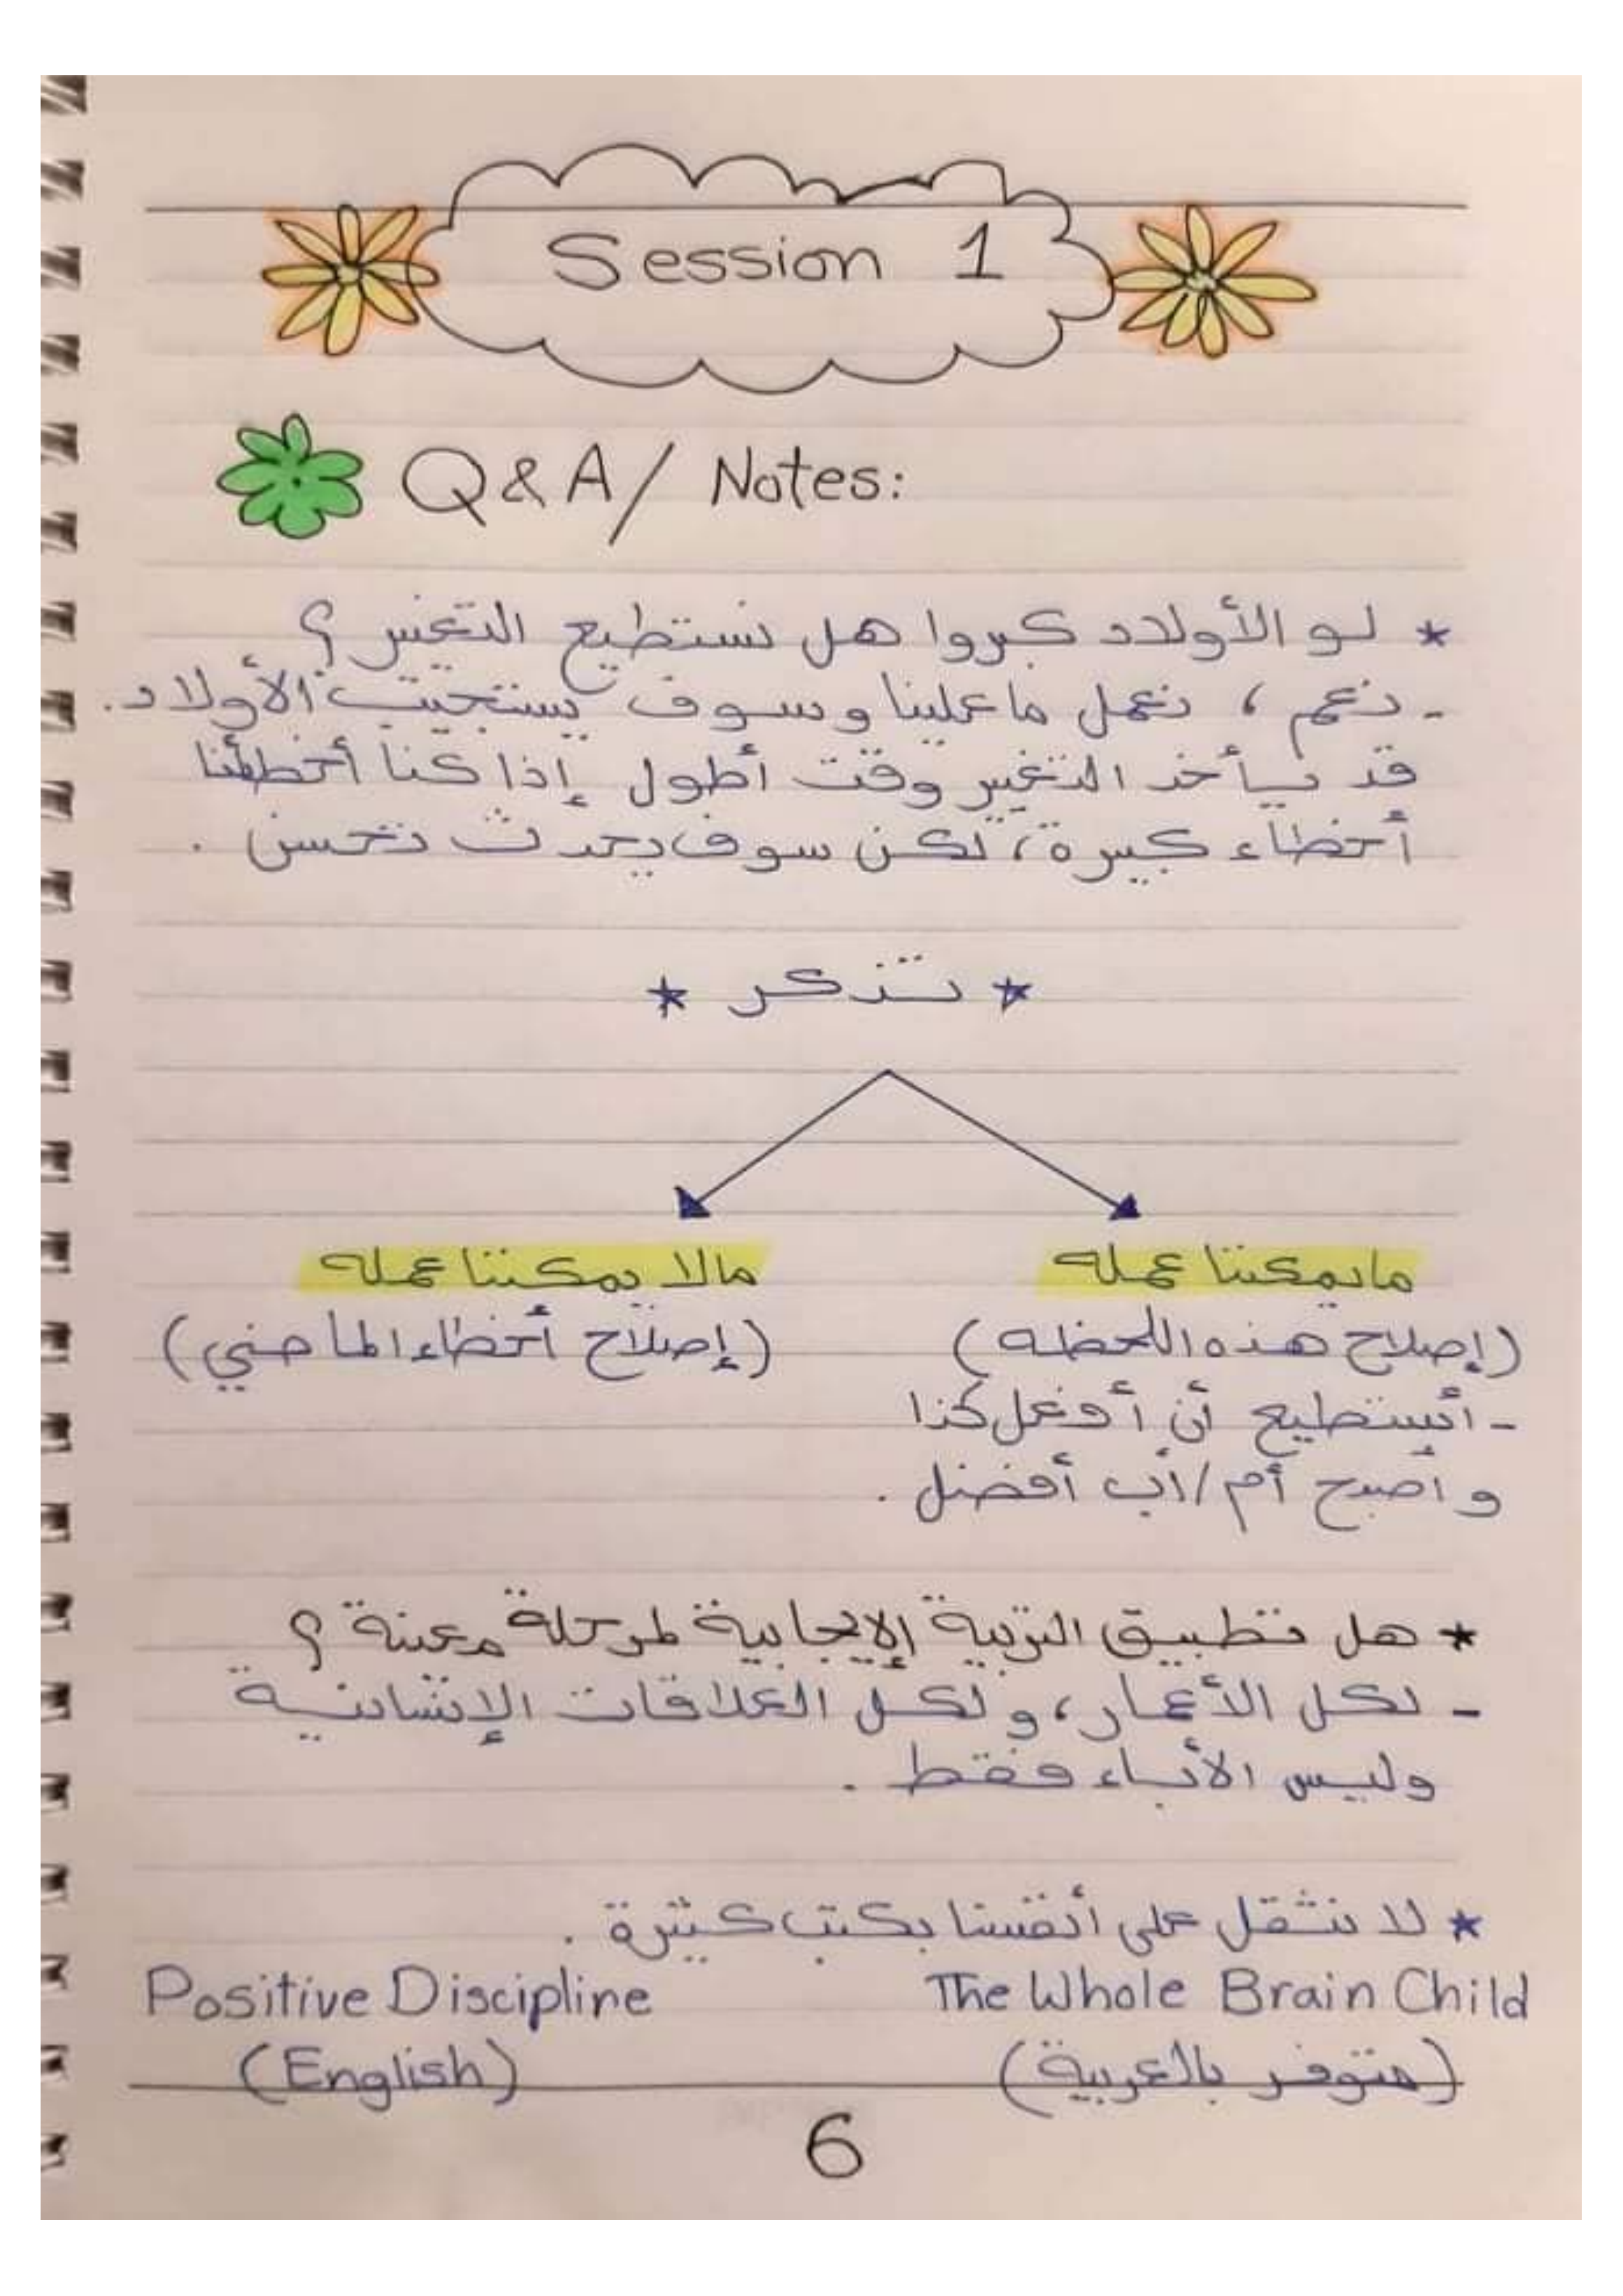 Session 1
Q & A / Notes:
* لو الأولاد كبروا هل نستطيع التغيير ؟
- نعم ، نعمل ما علينا وسوف يستجيب الأولاد.
قد يأخذ التغيير وقت أطول إذا كنا أخطأنا
أخطاء كبيرة، لكن سوف يحدث تحسن .
* تذكر *
ما يمكننا عمله
مالا يمكننا عمله
(إصلاح هذه اللحظه)
(إصلاح أخطاء الماضي)
- أستطيع أن أفعل كذا
وأصبح أم/أب أفضل .
* هل تطبيق التربية الإيجابية لمرحلة معينة ؟
- لكل الأعمار، ولكل العلاقات الإنسانية
وليس الأبناء فقط .
* لا نثقل على أنفسنا بكتب كثيرة .
The Whole Brain Child
Positive Discipline
(متوفر بالعربية)
(English)
6